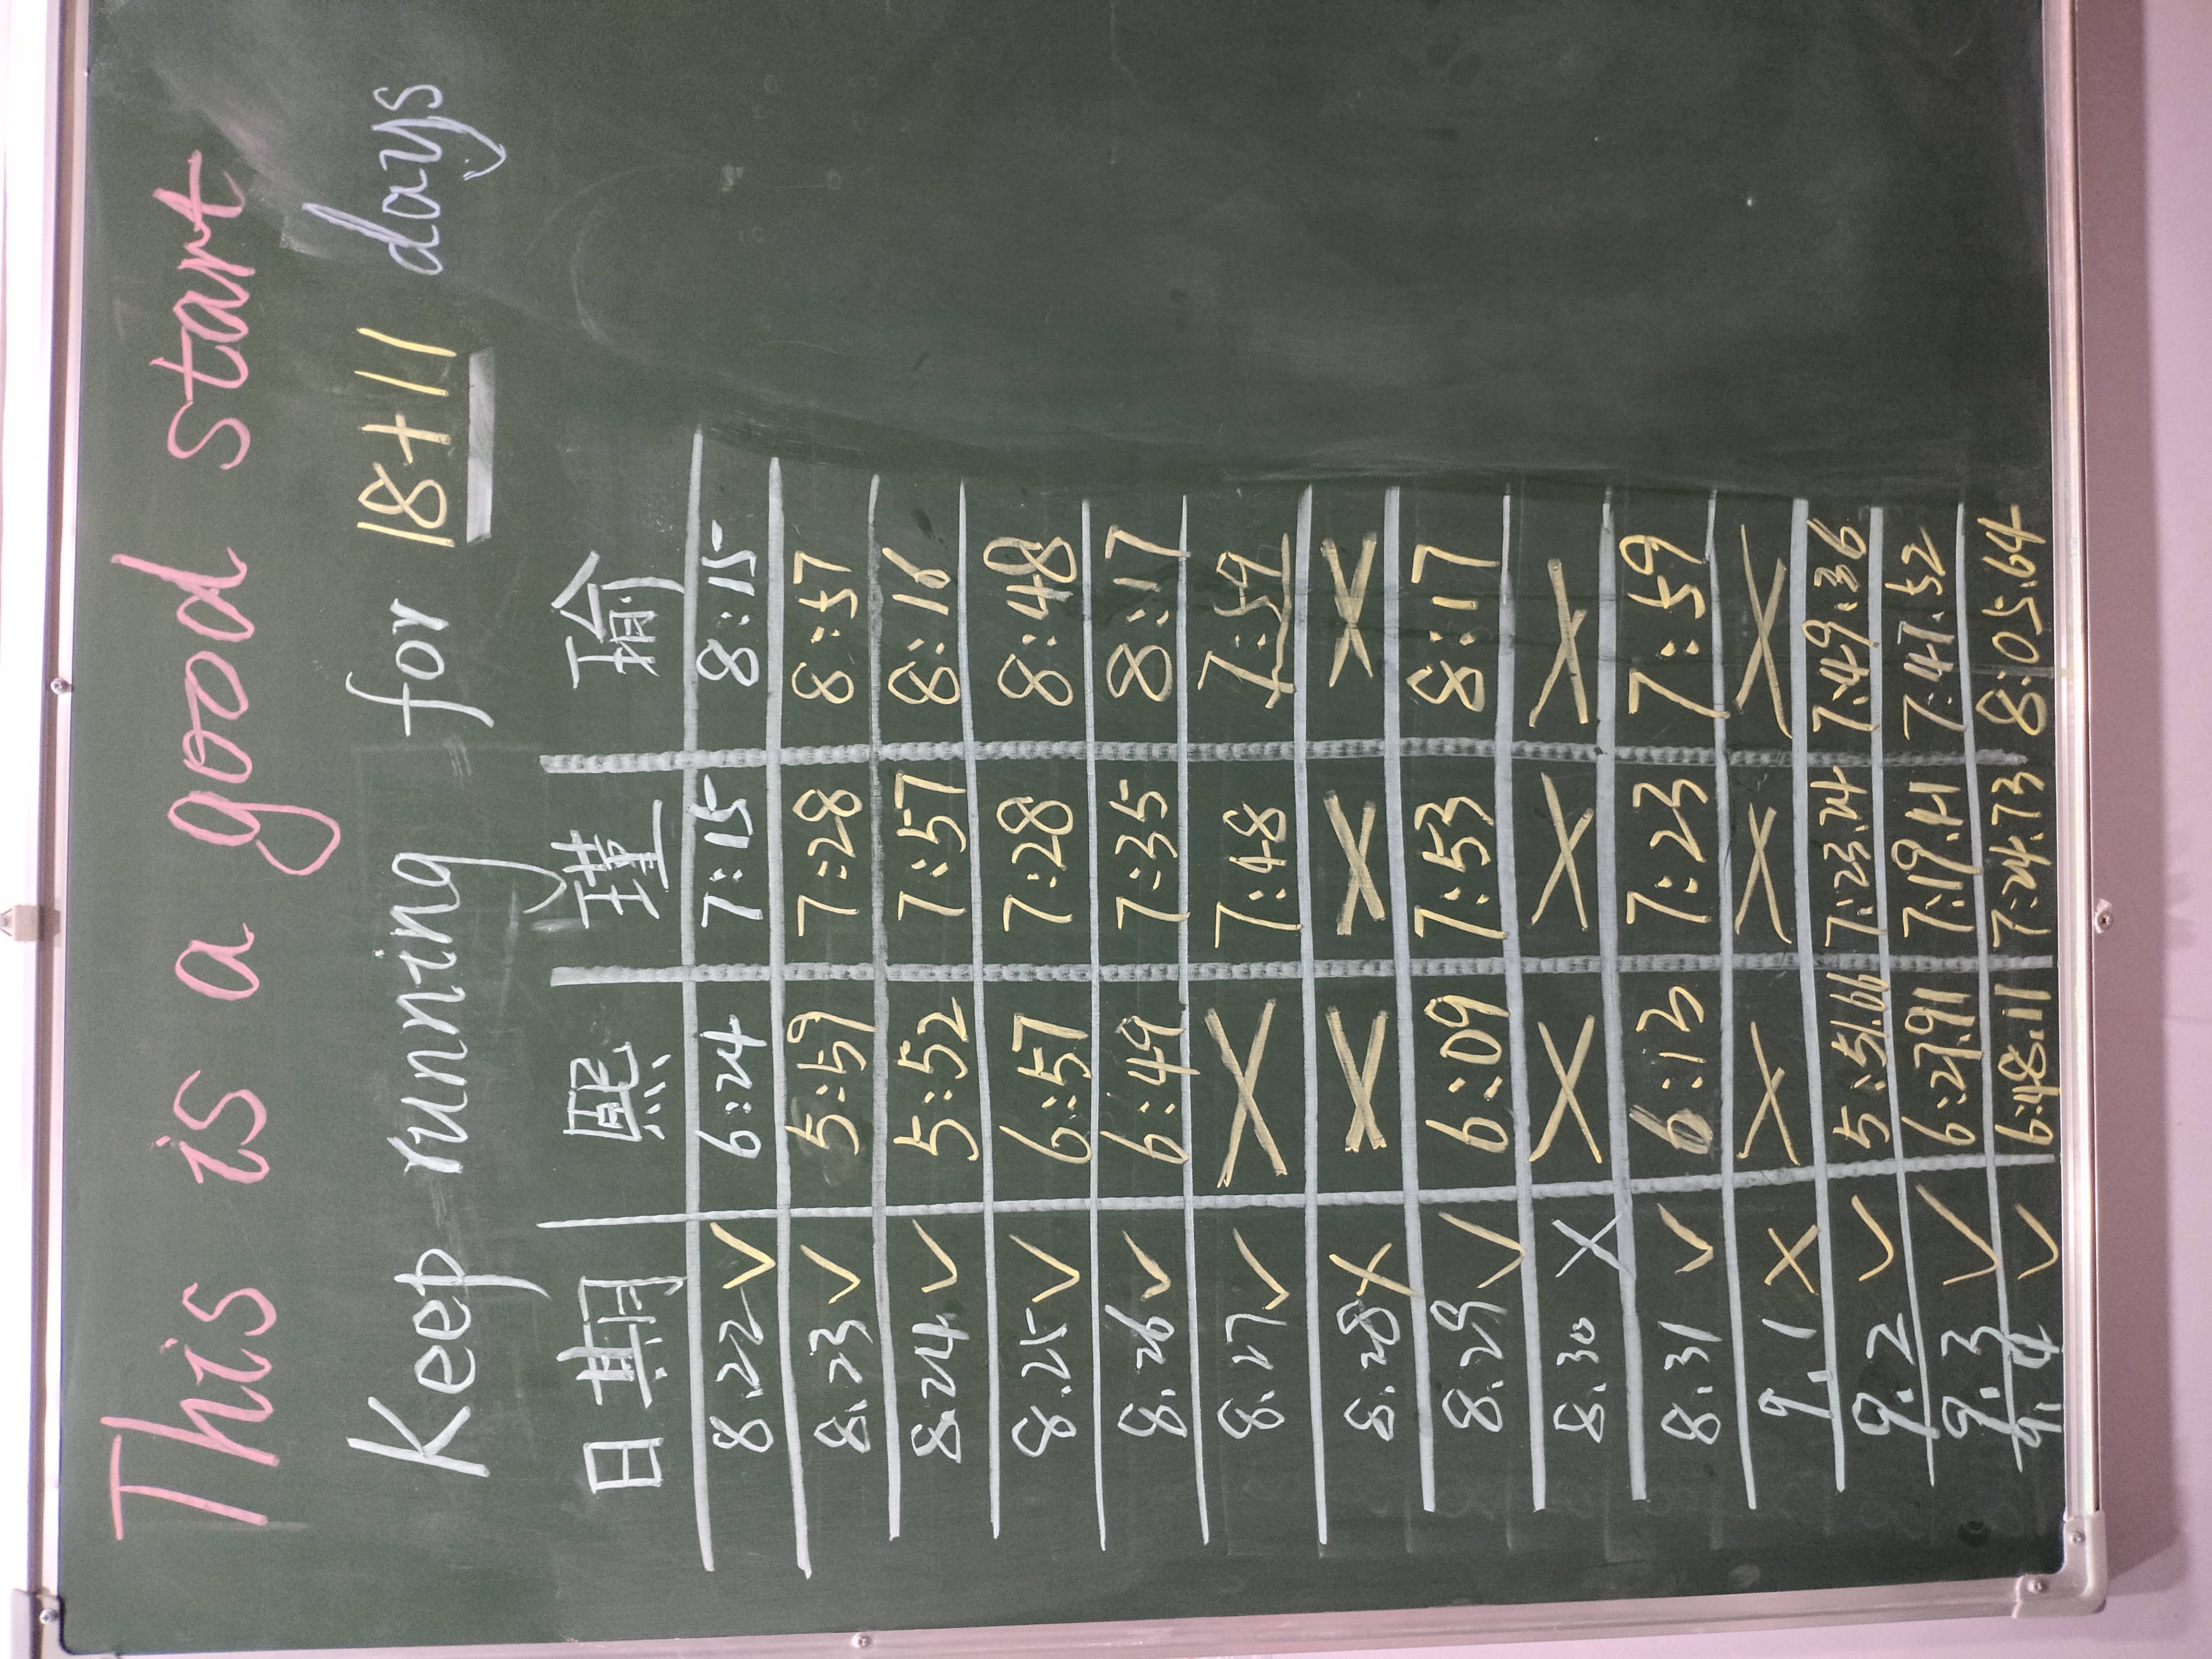 This is a good start
Keep running for 18+11 days
日期 熙 瑾 瑜
8.22 √ 6:24 7:15 8:15
8.23 √ 5:59 7:28 8:57
8.24 √ 5:52 7:57 8:16
8.25 √ 6:57 7:28 8:48
8.26 √ 6:49 7:35 8:17
8.27 √ × 7:48 7:59
8.28 × × × ×
8.29 √ 6:09 7:53 8:17
8.30 × × × ×
8.31 √ 6:13 7:23 7:59
9.1 × × × ×
9.2 √ 5:51.66 7:23.24 7:49.36
9.3 √ 6:27.91 7:19.41 7:47.52
9.4 √ 6:48.11 7:24.73 8:05.64